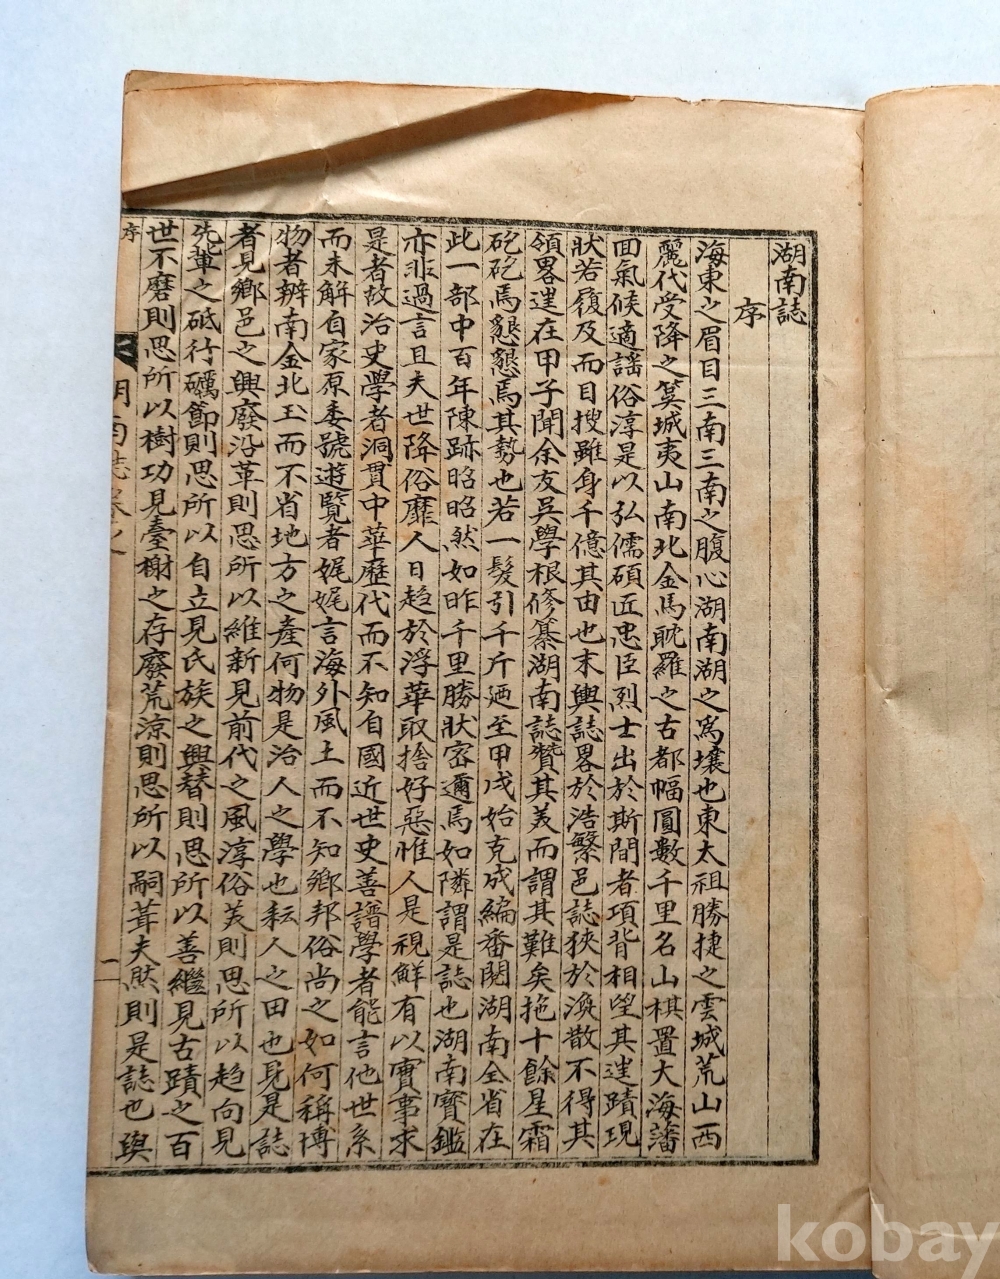 湖南誌
序
海東之眉目三南三南之腹心湖南湖之爲壤也東太祖勝捷之雲城荒山西
麗代受降之萁城夷山南北金馬耽羅之古都幅圓數千里名山棋置大海藩
囬氣候適謠俗淳是以弘儒碩匠忠臣烈士出於斯間者項背相望其迬蹟現
狀若履及而目搜雖身千億其由也末輿誌畧於浩繁邑誌狹於渙散不得其
領畧迬在甲子聞余友吳學根修纂湖南誌贊其美而謂其難矣拖十餘星霜
矻矻焉懇懇焉其勢也若一髮引千斤廼至甲戌始克成編番閱湖南全省在
此一部中百年陳跡昭昭然如昨千里勝狀密邇焉如隣謂是誌也湖南寶鑑
亦非過言且夫世降俗靡人日趍於浮華取捨好惡惟人是視鮮有以實事求
是者故治史學者洞貫中華歷代而不知自國近世史善譜學者能言他世系
而未解自家原委號遊覽者娓娓言海外風土而不知鄉邦俗尚之如何稱博
物者辨南金北玉而不省地方之產何物是治人之學也耘人之田也見是誌
者見鄉邑之興廢沿革則思所以維新見前代之風淳俗美則思所以趍向見
先輩之砥行礪節則思所以自立見氏族之興替則思所以善繼見古蹟之百
世不磨則思所以樹功見臺榭之存廢荒凉則思所以嗣葺夫然則是誌也與
序
湖南誌卷之
一
kobay